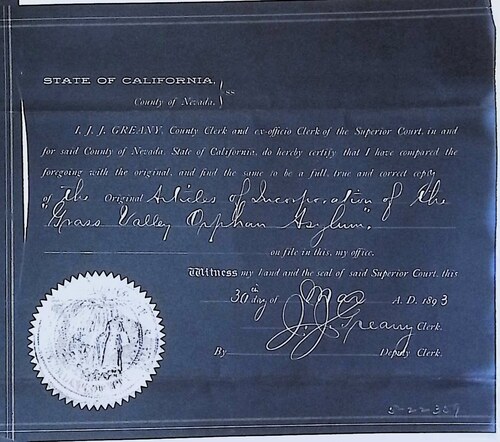 STATE OF CALIFORNIA,
County of Nevada.
} ss
I, J. J. GREANY, County Clerk and ex-officio Clerk of the Superior Court, in and
for said County of Nevada, State of California, do hereby certify that I have compared the
foregoing with the original, and find the same to be a full, true and correct copy
of "the Original Articles of Incorporation of the
"Grass Valley Orphan Asylum".
on file in this, my office.
Witness my hand and the seal of said Superior Court, this
30th day of May A. D. 1893
J. J. Greany Clerk.
By Deputy Clerk.